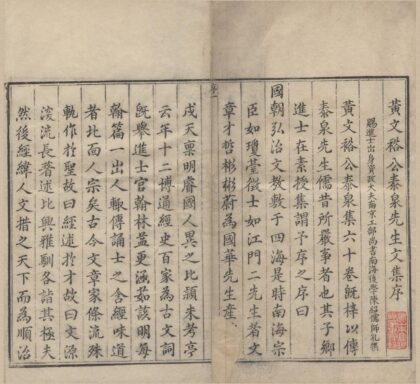 黃文裕公泰泉先生文集序
賜進士出身資政大夫南京工部尚書南海後學陳紹儒師孔撰
黃文裕公泰泉集六十卷既梓以傳
泰泉先生儒昔所嚴事者也其子鄉
進士在素授集謂予序之序曰
國朝弘治文教敷于四海是時南海宗
臣如瓊臺徵士如江門二先生著文
章才哲彬彬蔚為國華先生產
戊天稟明睿國人異之比蘇未考亭
云年十二博通經史百家為古文詞
既舉進士官翰林益更涵茹該明每
翰篇一出人輒傳誦士之含經味道
者北面人宗矣古今文章家條流殊
軌作於聖故曰經述於才故曰文源
浚流長著述比興雅馴各詣其極夫
然後經緯人文措之天下而為順治